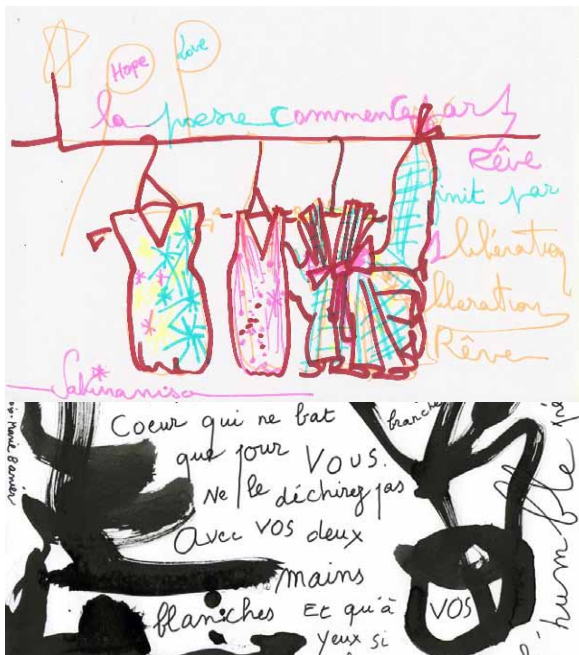 Hope
Love
la poesie commence par 1
Rêve
finit par
1 libération
libération
Rêve
Sakinamisa
Coeur qui ne bat
que pour VOUS.
Ne le déchirez pas
Avec VOS deux
mains
blanches Et qu'à
VOS
yeux si
l'humble
branches